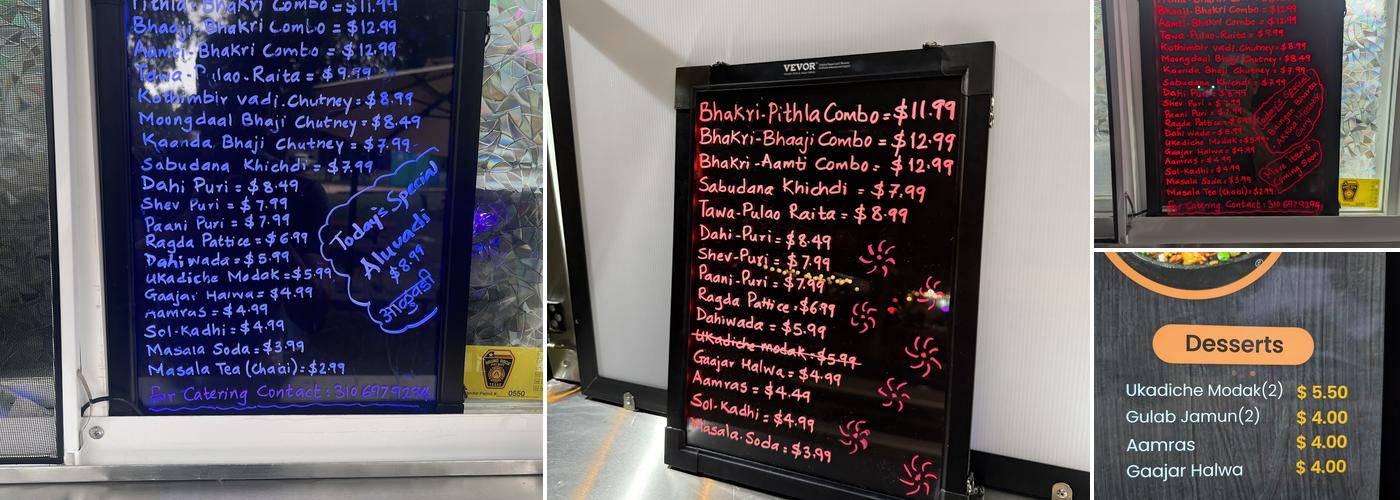 Pithla-Bhakri Combo = $11.99
Bhaaji-Bhakri Combo = $12.99
Aamti-Bhakri Combo = $12.99
Tawa-Pulao-Raita = $9.99
Kothimbir vadi.Chutney = $8.99
Moongdaal Bhaji Chutney = $8.49
Kaanda Bhaji Chutney = $7.99
Sabudana Khichdi = $7.99
Dahi Puri = $8.49
Shev Puri = $7.99
Paani Puri = $7.99
Ragda Pattice = $6.99
Dahiwada = $5.99
Ukadiche Modak = $5.99
Gaajar Halwa = $4.99
Aamras = $4.99
Sol-Kadhi = $4.99
Masala Soda = $3.99
Masala Tea (Chai) = $2.99
For Catering Contact : 310 697 9294
Today's Special
Aluvadi
$8.99
आळुवडी
0550
VEVOR
Bhakri-Pithla Combo = $11.99
Bhakri-Bhaaji Combo = $12.99
Bhakri-Aamti Combo = $12.99
Sabudana Khichdi = $7.99
Tawa-Pulao Raita = $8.99
Dahi-Puri = $8.49
Shev-Puri = $7.99
Paani-Puri = $7.99
Ragda Pattice = $6.99
Dahiwada = $5.99
Ukadiche modak = $5.99
Gaajar Halwa = $4.99
Aamras = $4.49
Sol-Kadhi = $4.99
Masala-Soda = $3.99
Bhaaji-Bhakri Combo = $12.99
Aamti-Bhakri Combo = $12.99
Tawa-Pulao-Raita = $9.99
Kothimbir vadi.Chutney = $8.99
Moongdaal Bhaji Chutney = $8.49
Kaanda Bhaji Chutney = $7.99
Sabudana Khichdi = $7.99
Dahi Puri
Shev Puri = $7.99
Paani Puri = $7.99
Ragda Pattice = $6.99
Dahi wada = $5.99
Ukadiche Modak = $5.99
Gaajar Halwa = $4.99
Aamras = $4.99
Sol-Kadhi = $4.99
Masala Soda = $3.99
Masala Tea (Chai) = $2.99
For Catering Contact : 310 697 9294
Today's Special
Baingan Bharta
Curry
More Items
Coming Soon
Desserts
Ukadiche Modak(2) $ 5.50
Gulab Jamun(2) $ 4.00
Aamras $ 4.00
Gaajar Halwa $ 4.00